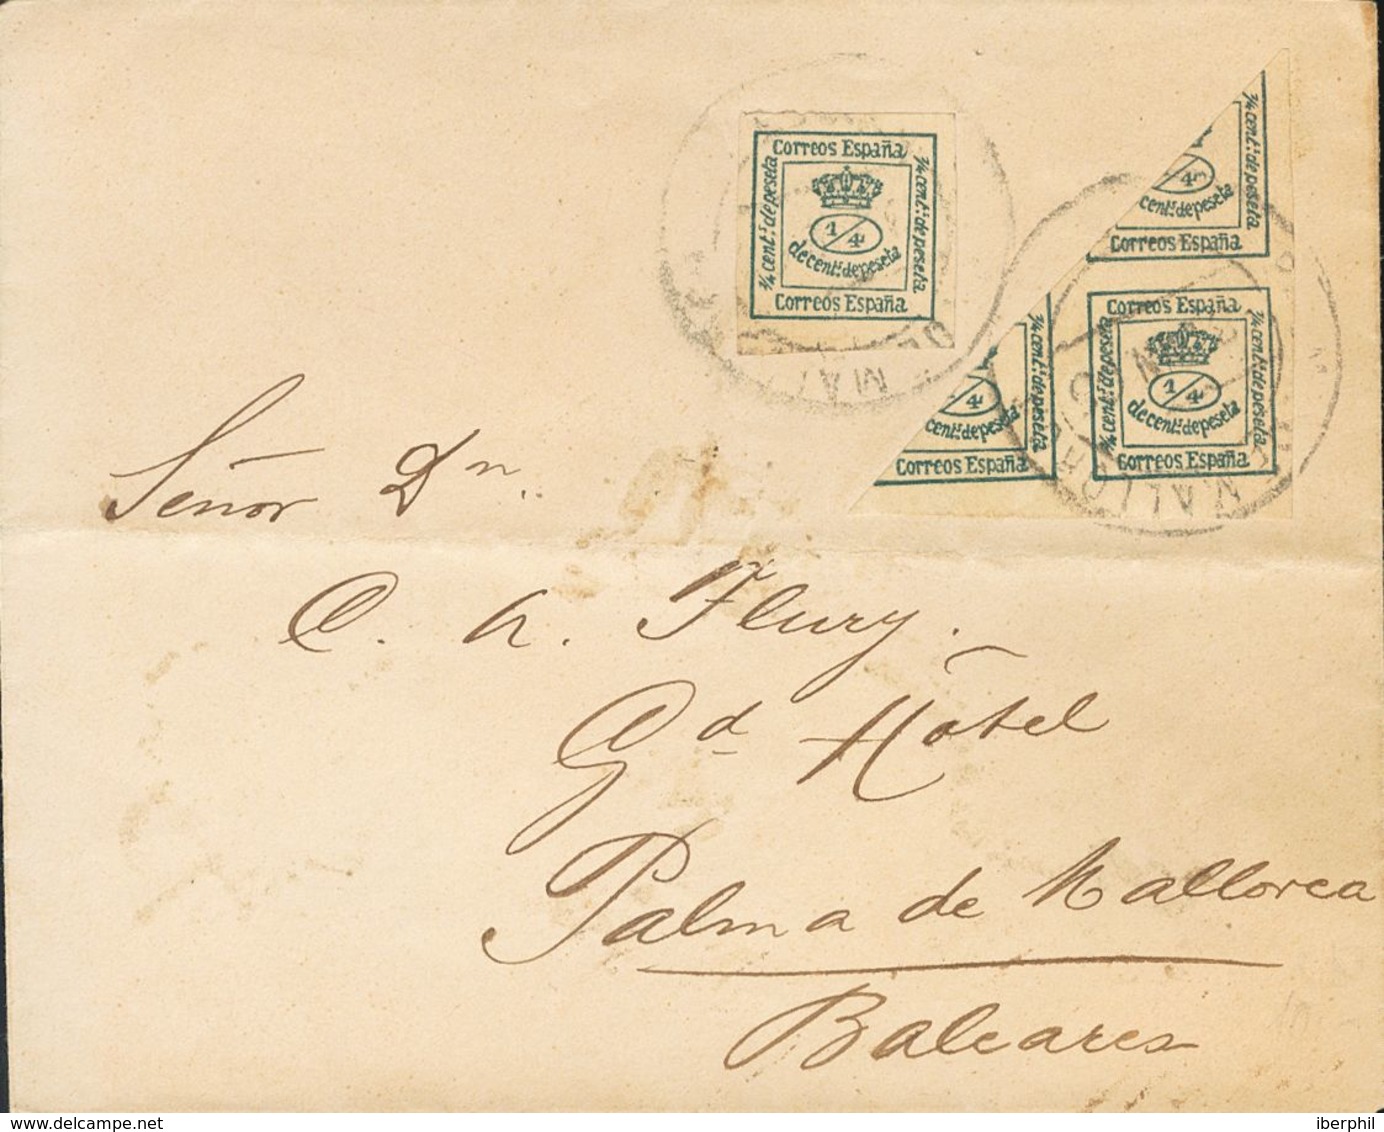 Correos España
¼ cent.º de peseta
¼ cent.º de peseta
1/4
de cent.º de peseta
Correos España
¼ cent.º de peseta
1/4
cent.º de peseta
Correos España
¼ cent.º de peseta
1/4
cent.º de peseta
Correos España
Correos España
¼ cent.º de peseta
¼ cent.º de peseta
1/4
de cent.º de peseta
Correos España
Señor Dn.
C. A. Flury.
Gd Hôtel
Palma de Mallorca
Baleares
delcampe.net
iberphil